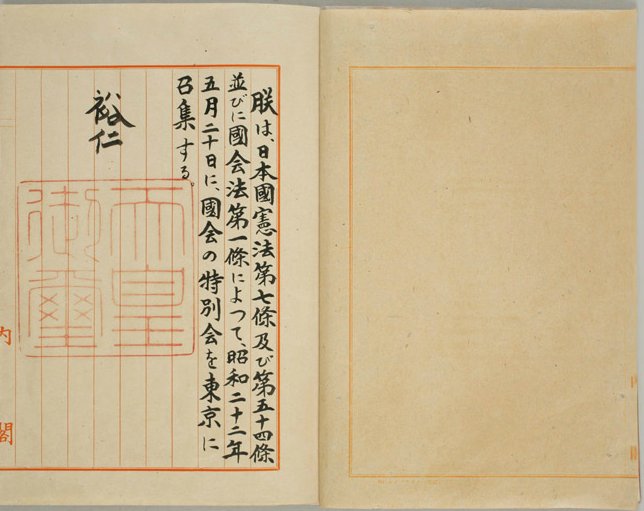 朕は、日本國憲法第七條及び第五十四條
並びに國会法第一條によつて、昭和二十二年
五月二十日に、國会の特別会を東京に
召集する。
裕仁
天皇
御璽
内閣